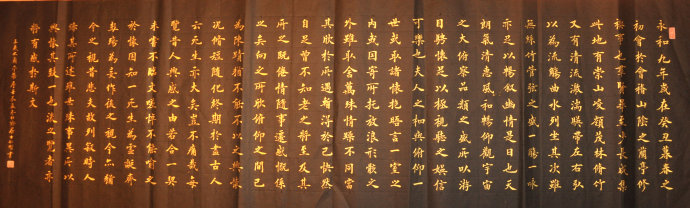 永和九年歲在癸丑暮春之
初會於會稽山陰之蘭亭修
禊事也群賢畢至少長咸集
此地有崇山峻領茂林脩竹
又有清流激湍暎帶左右引
以為流觴曲水列坐其次雖
無絲竹管弦之盛一觴一詠
亦足以暢叙幽情是日也天
朗氣清惠風和暢仰觀宇宙
之大俯察品類之盛所以游
目騁懷足以極視聽之娛信
可樂也夫人之相與俯仰一
世或取諸懷抱晤言一室之
內或因寄所托放浪形骸之
外雖趣舍萬殊靜躁不同當
其欣於所遇暫得於己快然
自足曾不知老之將至及其
所之既倦情隨事遷感慨係
之矣向之所欣俯仰之間已
為陳跡猶不能不以之興懷
況脩短隨化終期於盡古人
云死生亦大矣豈不痛哉每
覽昔人興感之由若合一契
未嘗不臨文嗟悼不能喻之
於懷固知一死生為虛誕齊
彭殤為妄作後之視今亦猶
今之視昔悲夫故列敘時人
錄其所述雖世殊事異所以
興懷其致一也後之覽者亦
將有感於斯文